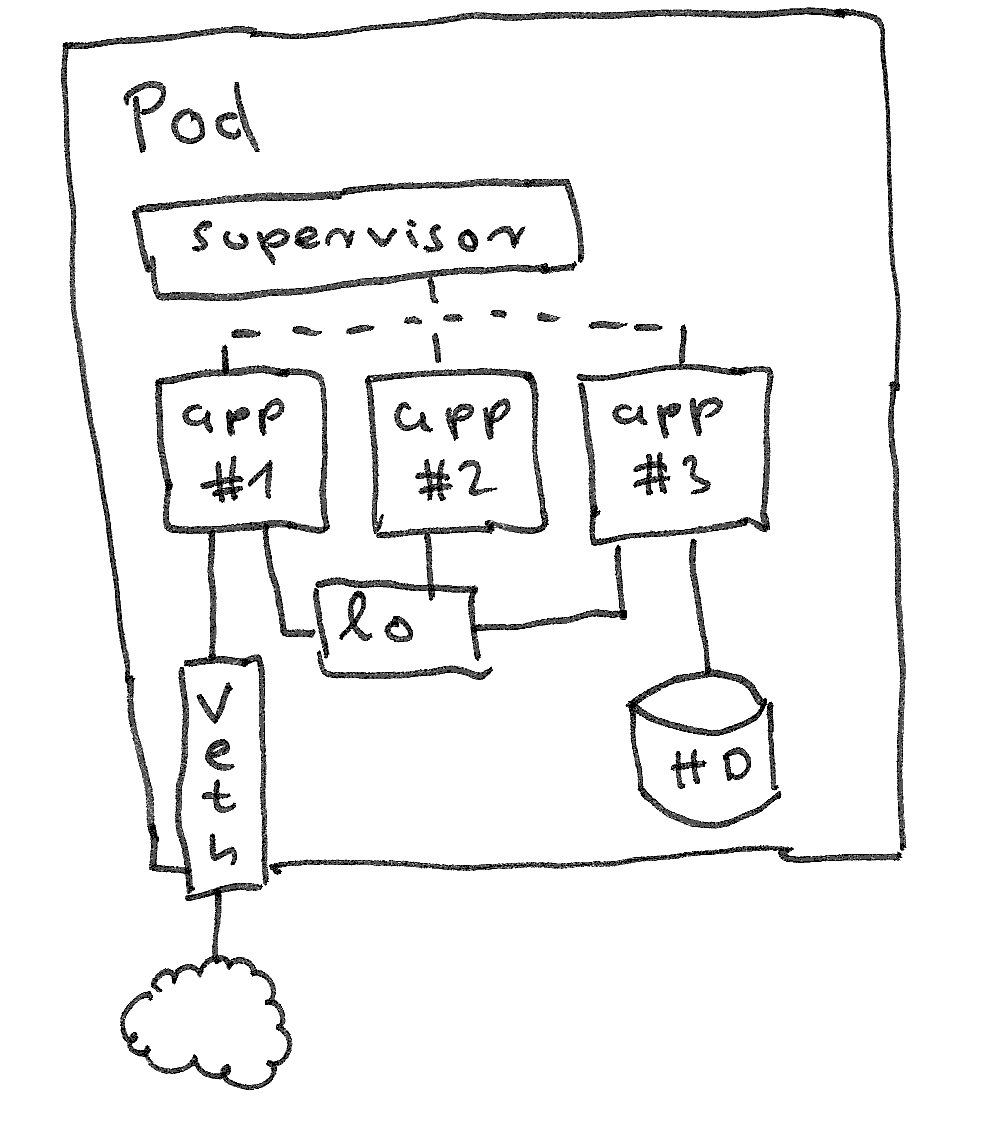 Pod
supervisor
app
#1
app
#2
app
#3
lo
veth
HD